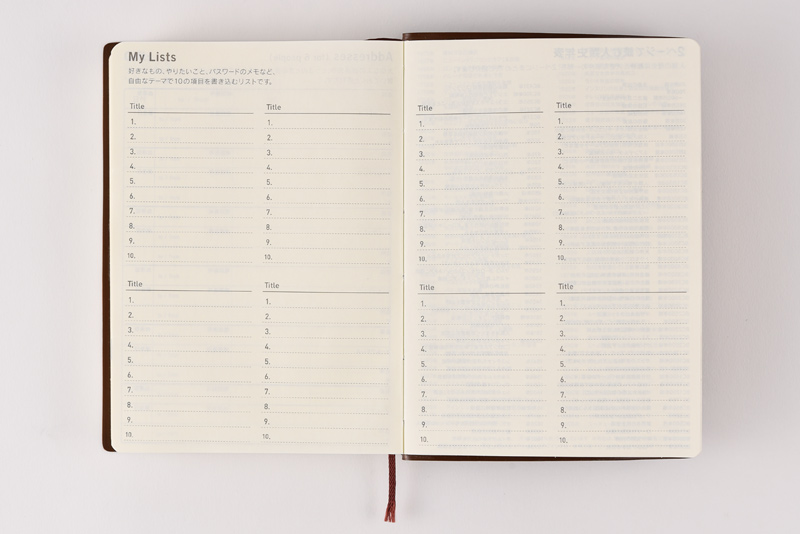 My Lists
好きなもの、やりたいこと、パスワードのメモなど、
自由なテーマで10の項目を書き込むリストです。
Title
1.
2.
3.
4.
5.
6.
7.
8.
9.
10.
Title
1.
2.
3.
4.
5.
6.
7.
8.
9.
10.
Title
1.
2.
3.
4.
5.
6.
7.
8.
9.
10.
Title
1.
2.
3.
4.
5.
6.
7.
8.
9.
10.
Title
1.
2.
3.
4.
5.
6.
7.
8.
9.
10.
Title
1.
2.
3.
4.
5.
6.
7.
8.
9.
10.
Title
1.
2.
3.
4.
5.
6.
7.
8.
9.
10.
Title
1.
2.
3.
4.
5.
6.
7.
8.
9.
10.